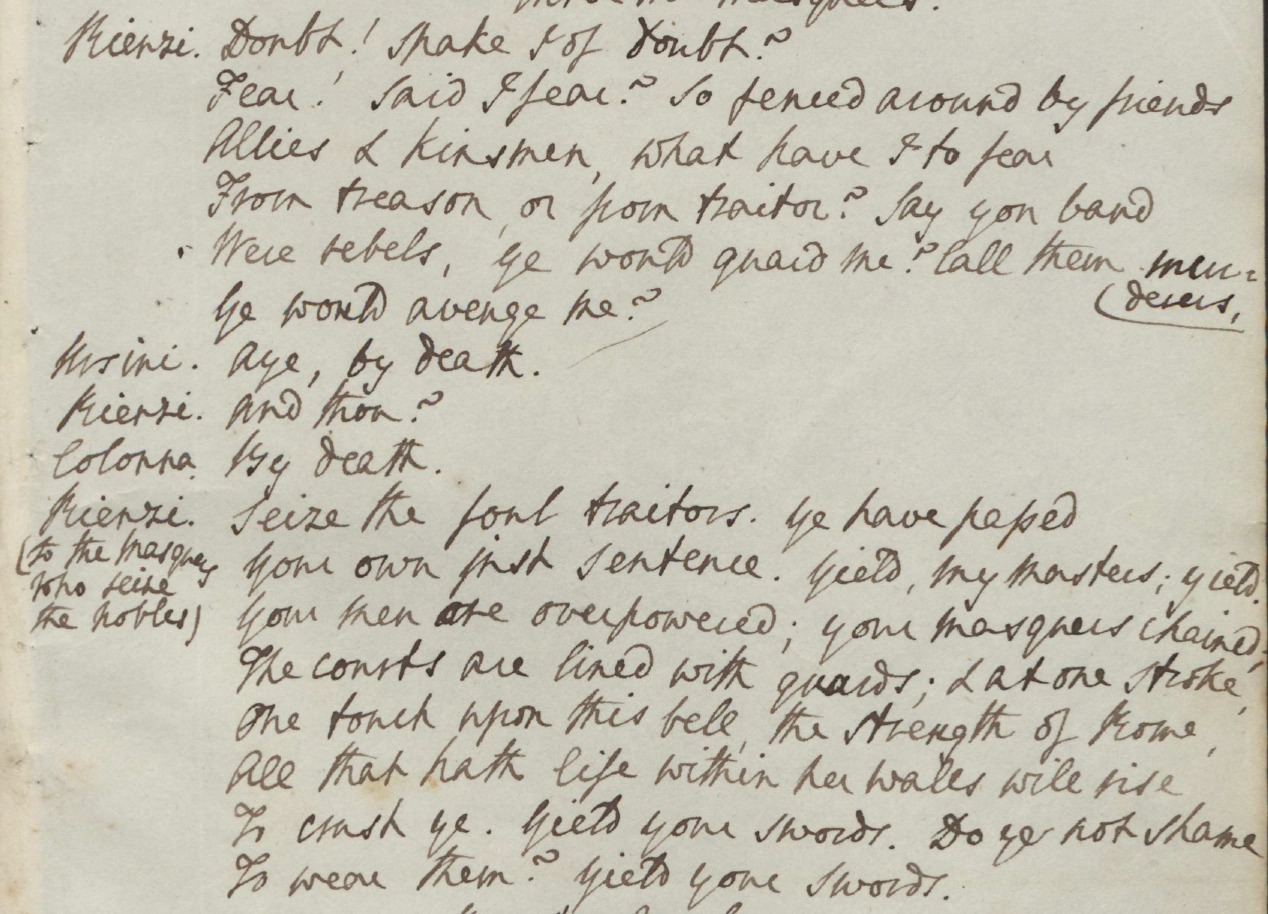 Rienzi. Doubt! Spake I of doubt?
Fear! Said I fear? So fenced around by friends
Allies & kinsmen, what have I to fear
From treason, or from traitor? Say yon band
Were rebels, ye would guard me? Call them mur=
(derers,
Ye would avenge me?
Ursini. Aye, by death.
Rienzi. And thou?
Colonna. By death.
Rienzi. Seize the foul traitors. Ye have passed
(to the Masquers
who seize
the nobles)
Your own just sentence. Yield, my masters; yield.
Your men are overpowered; your masquers chained;
The courts are lined with guards; & at one stroke,
One touch upon this bell, the strength of Rome,
All that hath life within her walls will rise
To crush ye. Yield your swords. Do ye not shame
To wear them? Yield your swords.